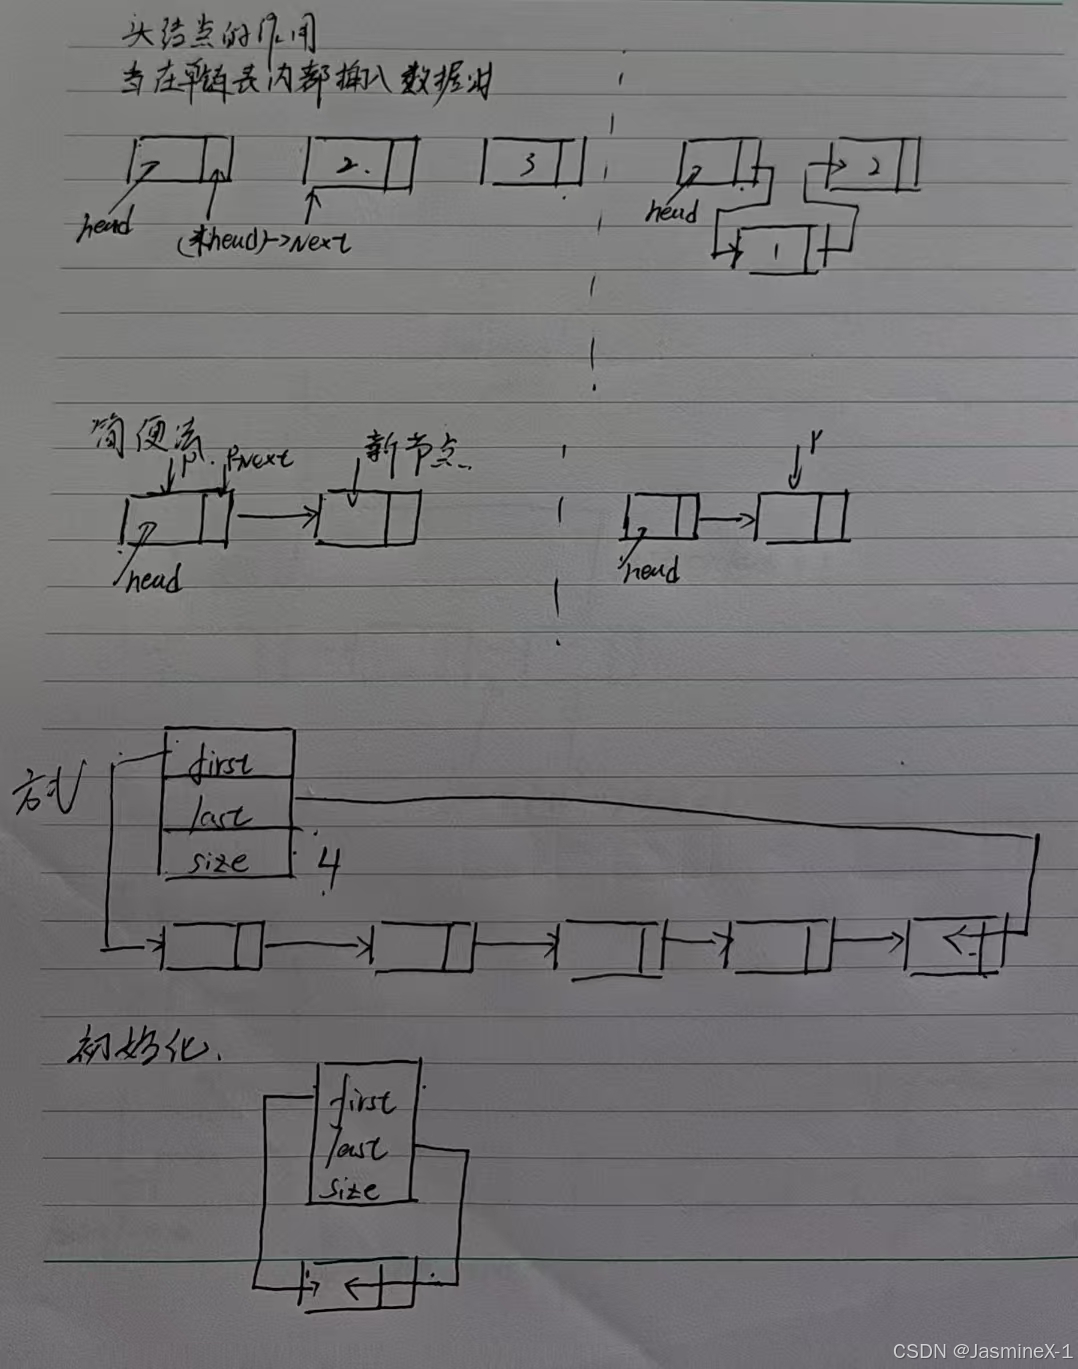 头结点的作用
当在单链表内部插入数据时
2. 3 2
head (*head)->Next head
1
简便法
P PNext 新节点 P
head head
方式
first
last
size 4
初始化.
first
last
size
CSDN @JasmineX-1